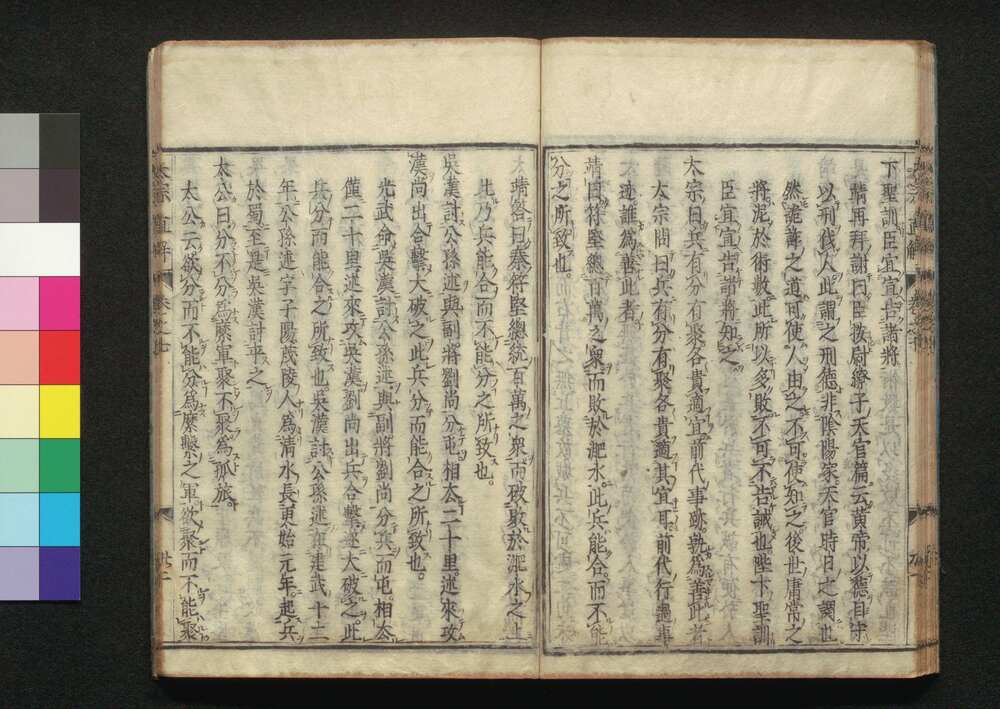 下聖訓臣宜宣告諸將
靖再拜謝曰臣按尉繚子天官篇云黄帝以德自守
以刑伐人此謂之刑德非陰陽家天官時日之謂也
然詭詐之道可使人由之不可使知之後世庸常之
將泥於術數此所以多敗不可不告誡也陛下聖訓
臣宜宣告諸將知之
太宗曰兵有分有聚各貴適宜前代事跡孰爲善此者
太宗問曰兵有分有聚各貴適其宜耳前代行過事
迹誰爲善此者
靖曰苻堅總百萬之衆而敗於淝水此兵能合而不能
分之所致也
靖答曰秦苻堅總統百萬之衆而破敗於淝水之上
此乃兵能合而不能分之所致也
吳漢討公孫述與副將劉尚分屯相去二十里述來攻
漢尚出合擊大破之此兵分而能合之所致也
光武命吳漢討公孫述與副將劉尚分兵而屯相去
僅二十里述來攻吳漢劉尚出兵合擊述大破之此
兵分而能合之所致也吳漢討公孫述在建武十二
年公孫述字子陽茂陵人爲清水長更始元年起兵
於蜀至是吳漢討平之
太公曰分不分爲縻軍聚不聚爲孤旅
太公云欲分而不能分爲縻繫之軍欲聚而不能聚
太宗直解